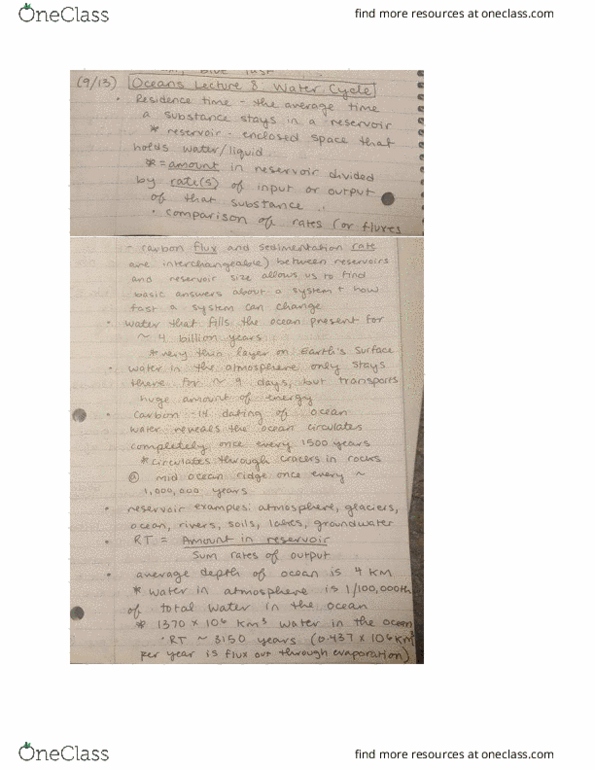 OneClass
find more resources at oneclass.com
(9/13) Oceans Lecture 8 Water Cycle
• Residence time - the average time
a substance stays in a reservoir
* reservoir - enclosed space that
holds water/liquid
* = amount in reservoir divided
by rate(s) of input or output
of that substance
• comparison of rates (or fluxes
- carbon flux and sedimentation rate
are interchangeable) between reservoirs
and reservoir size allows us to find
basic answers about a system + how
fast a system can change
• water that fills the ocean present for
~ 4 billion years
* very thin layer on Earth's surface
• water in the atmosphere only stays
there for ~ 9 days, but transports
huge amount of energy
• carbon-14 dating of ocean
water reveals the ocean circulates
completely once every 1500 years
* circulates through cracks in rocks
@ mid ocean ridge once every ~
1,000,000 years
• reservoir examples: atmosphere, glaciers,
ocean, rivers, soils, lakes, groundwater
• RT = Amount in reservoir
Sum rates of output
• average depth of ocean is 4 KM
* water in atmosphere is 1/100,000th
of total water in the ocean
* 1370 x 10⁶ km³ water in the ocean
• RT ~ 3150 years (0.437 x 10⁶ km³
per year is flux out through evaporation)
OneClass
find more resources at oneclass.com